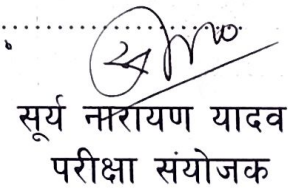 सूर्य नारायण यादव
परीक्षा संयोजक